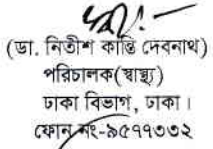 (ডা. নিতীশ কান্তি দেবনাথ)
পরিচালক(স্বাস্থ্য)
ঢাকা বিভাগ, ঢাকা।
ফোন নং-৯৫৭৭৩৩২